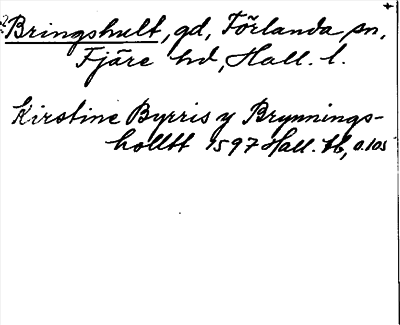 Bringshult, gd, Förlanda sn,
Fjäre hd, Hall. l.
Kirstine Byrris y Brynnings-
holltt 1597 Hall. tb, 0.105